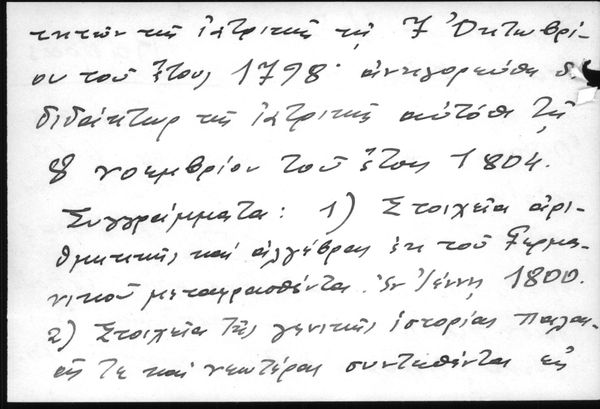 τητῶν τῆς ἰατρικῆς τῇ 7 Ὀκτωβρί-
ου τοῦ ἔτους 1798· ἀνηγορεύθη δὲ
διδάκτωρ τῆς ἰατρικῆς αὐτόθι τῇ
8 νοεμβρίου τοῦ ἔτους 1804.
Συγγράμματα: 1) Στοιχεῖα ἀρι-
θμητικῆς καὶ ἀλγέβρας ἐκ τοῦ Γερμα-
νικοῦ μεταφρασθέντα. Ἐν Ἰέννῃ 1800.
2) Στοιχεῖα τῆς γενικῆς ἱστορίας παλαι-
ᾶς τε καὶ νεωτέρας συντεθέντα εἰς